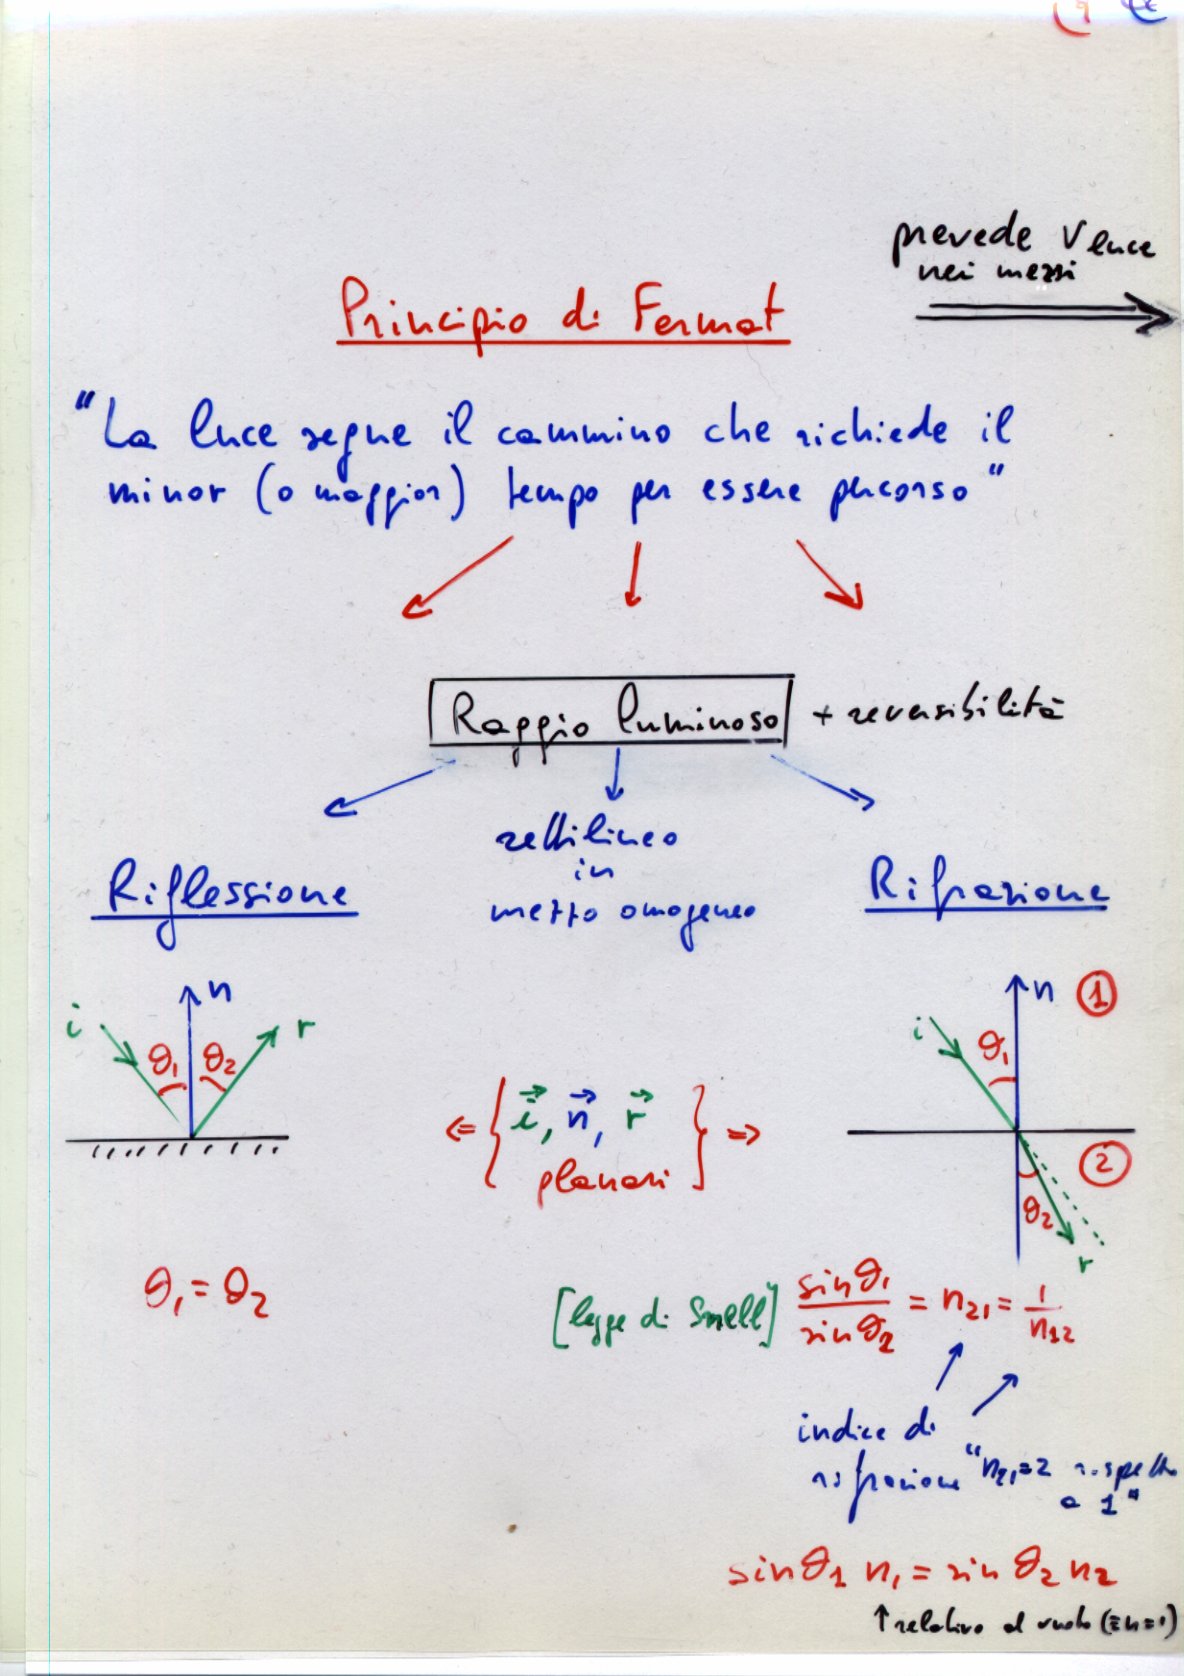 prevede V luce
nei mezzi
Principio di Fermat
"La luce segue il cammino che richiede il
minor (o maggior) tempo per essere percorso"
Raggio luminoso + reversibilità
rettilineo
in
mezzo omogeneo
Riflessione
Rifrazione
i n r
θ₁ θ₂
n ①
i θ₁
②
θ₂
r
⇐ { i⃗, n⃗, r⃗ } ⇒
planari
θ₁ = θ₂
[legge di Snell] sinθ₁/sinθ₂ = n₂₁ = 1/n₁₂
indice di
rifrazione "n₂₁=2 rispetto
a 1"
sinθ₁ n₁ = sin θ₂ n₂
↑ relativo al vuoto (≡n=1)